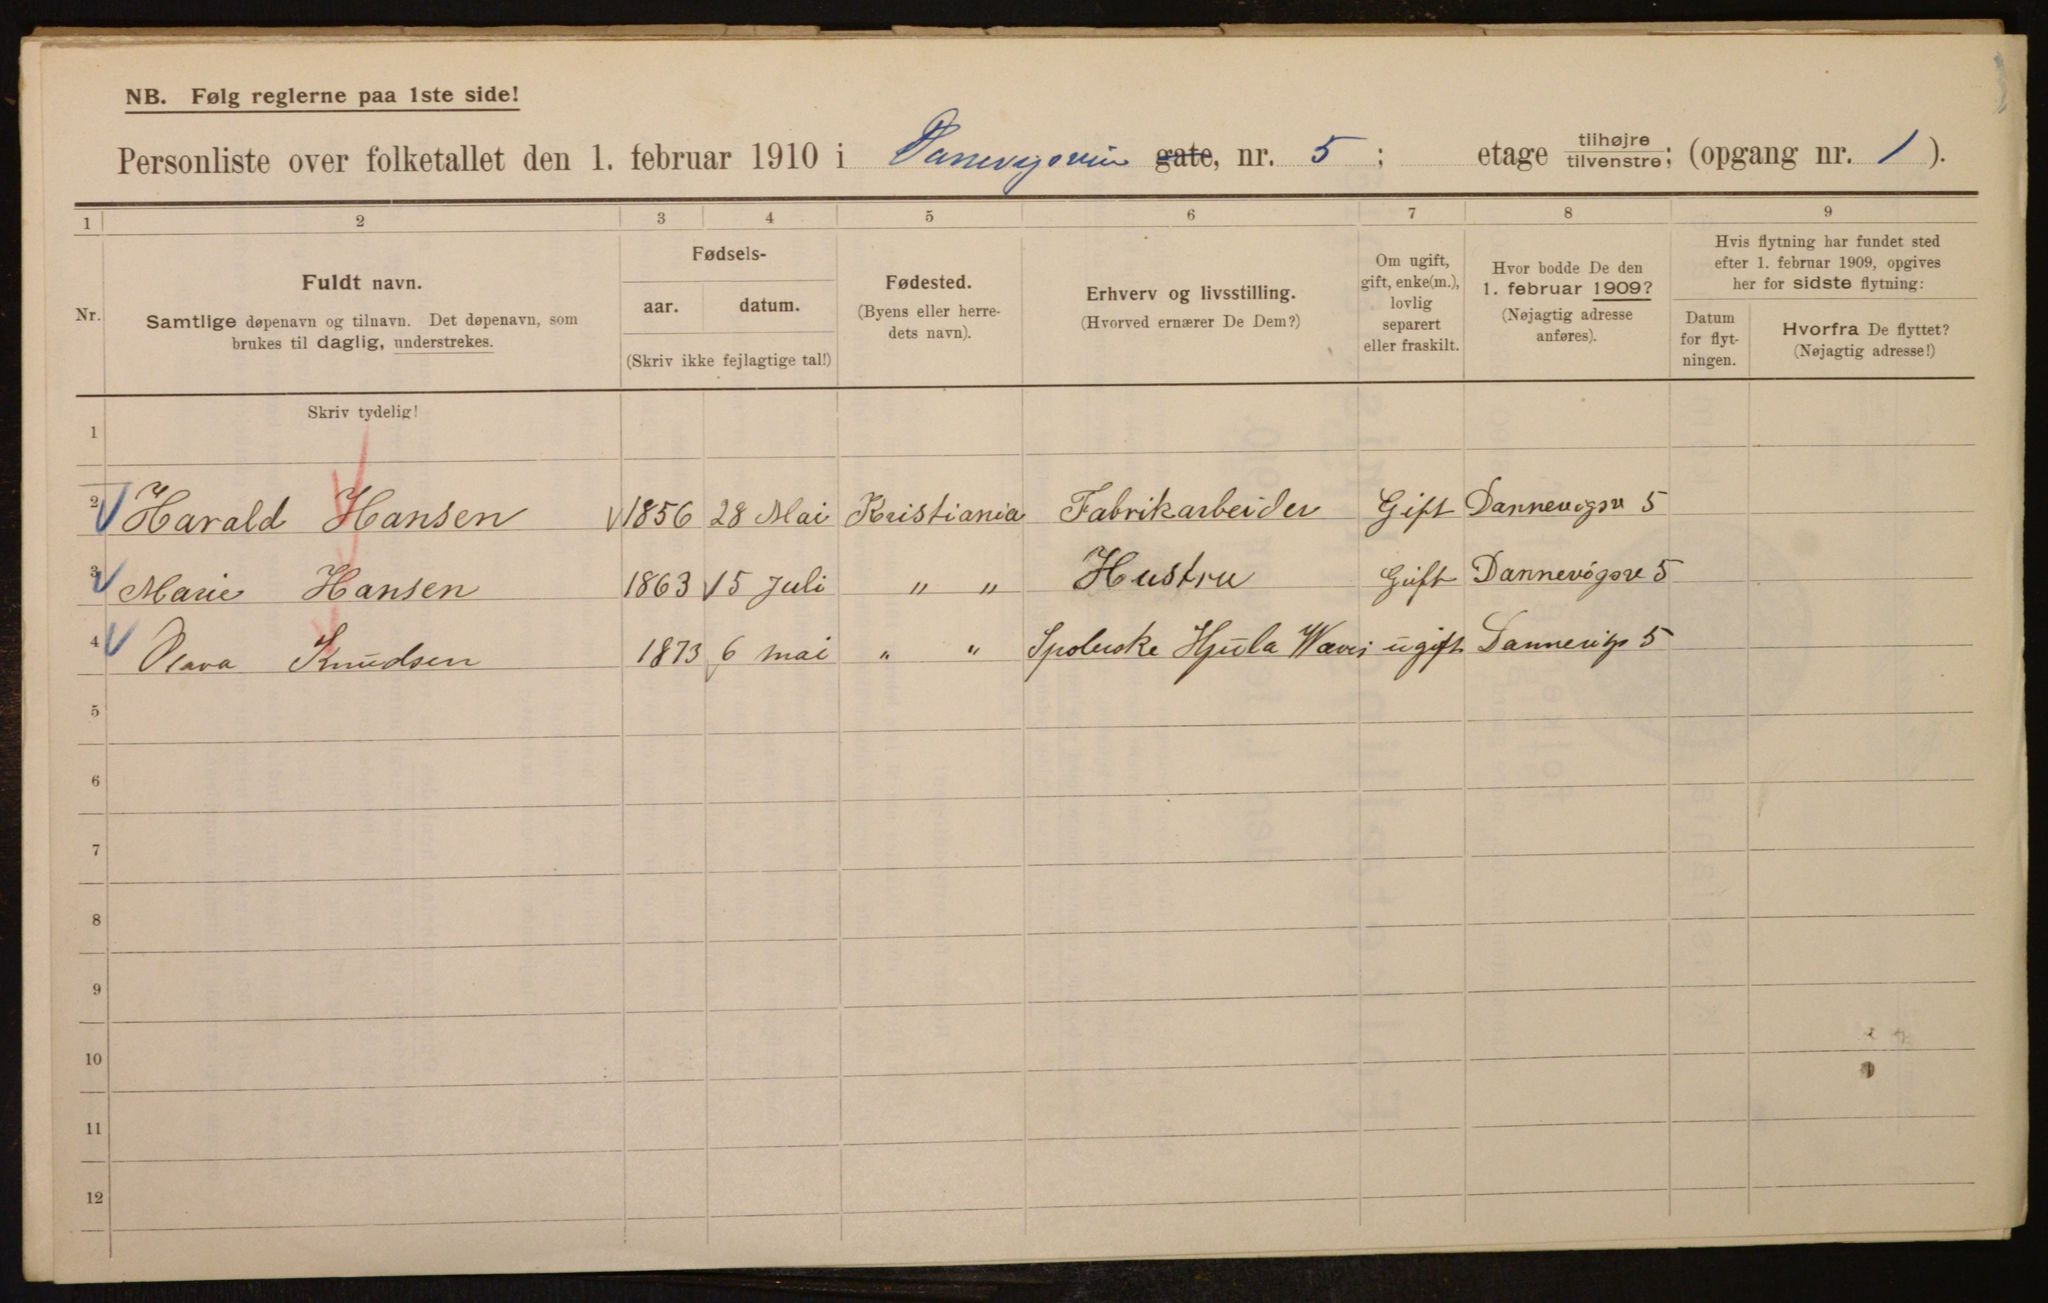 NB. Følg reglerne paa 1ste side!
Personliste over folketallet den 1. februar 1910 i Dannevigsvein gate, nr. 5 ; etage tilhøjre tilvenstre; (opgang nr. 1 ).
1 2 3 4 5 6 7 8 9
Nr.
Fuldt navn.
Samtlige døpenavn og tilnavn. Det døpenavn, som
brukes til daglig, understrekes.
Fødsels-
aar. datum.
(Skriv ikke fejlagtige tal!)
Fødested.
(Byens eller herre-
dets navn).
Erhverv og livsstilling.
(Hvorved ernærer De Dem?)
Om ugift,
gift, enke(m.),
lovlig
separert
eller fraskilt.
Hvor bodde De den
1. februar 1909?
(Nøjagtig adresse
anføres).
Hvis flytning har fundet sted
efter 1. februar 1909, opgives
her for sidste flytning:
Datum
for flyt-
ningen.
Hvorfra De flyttet?
(Nøjagtig adresse!)
Skriv tydelig!
1
2 Harald Hansen 1856 28 Mai Kristiania Fabrikarbeider Gift Dannevigsv 5
3 Marie Hansen 1863 15 Juli " " Hustru Gift Dannevigsve 5
4 Olava Knudsen 1873 6 mai " " Spolerske Hjula Wæve ugift 5
5
6
7
8
9
10
11
12